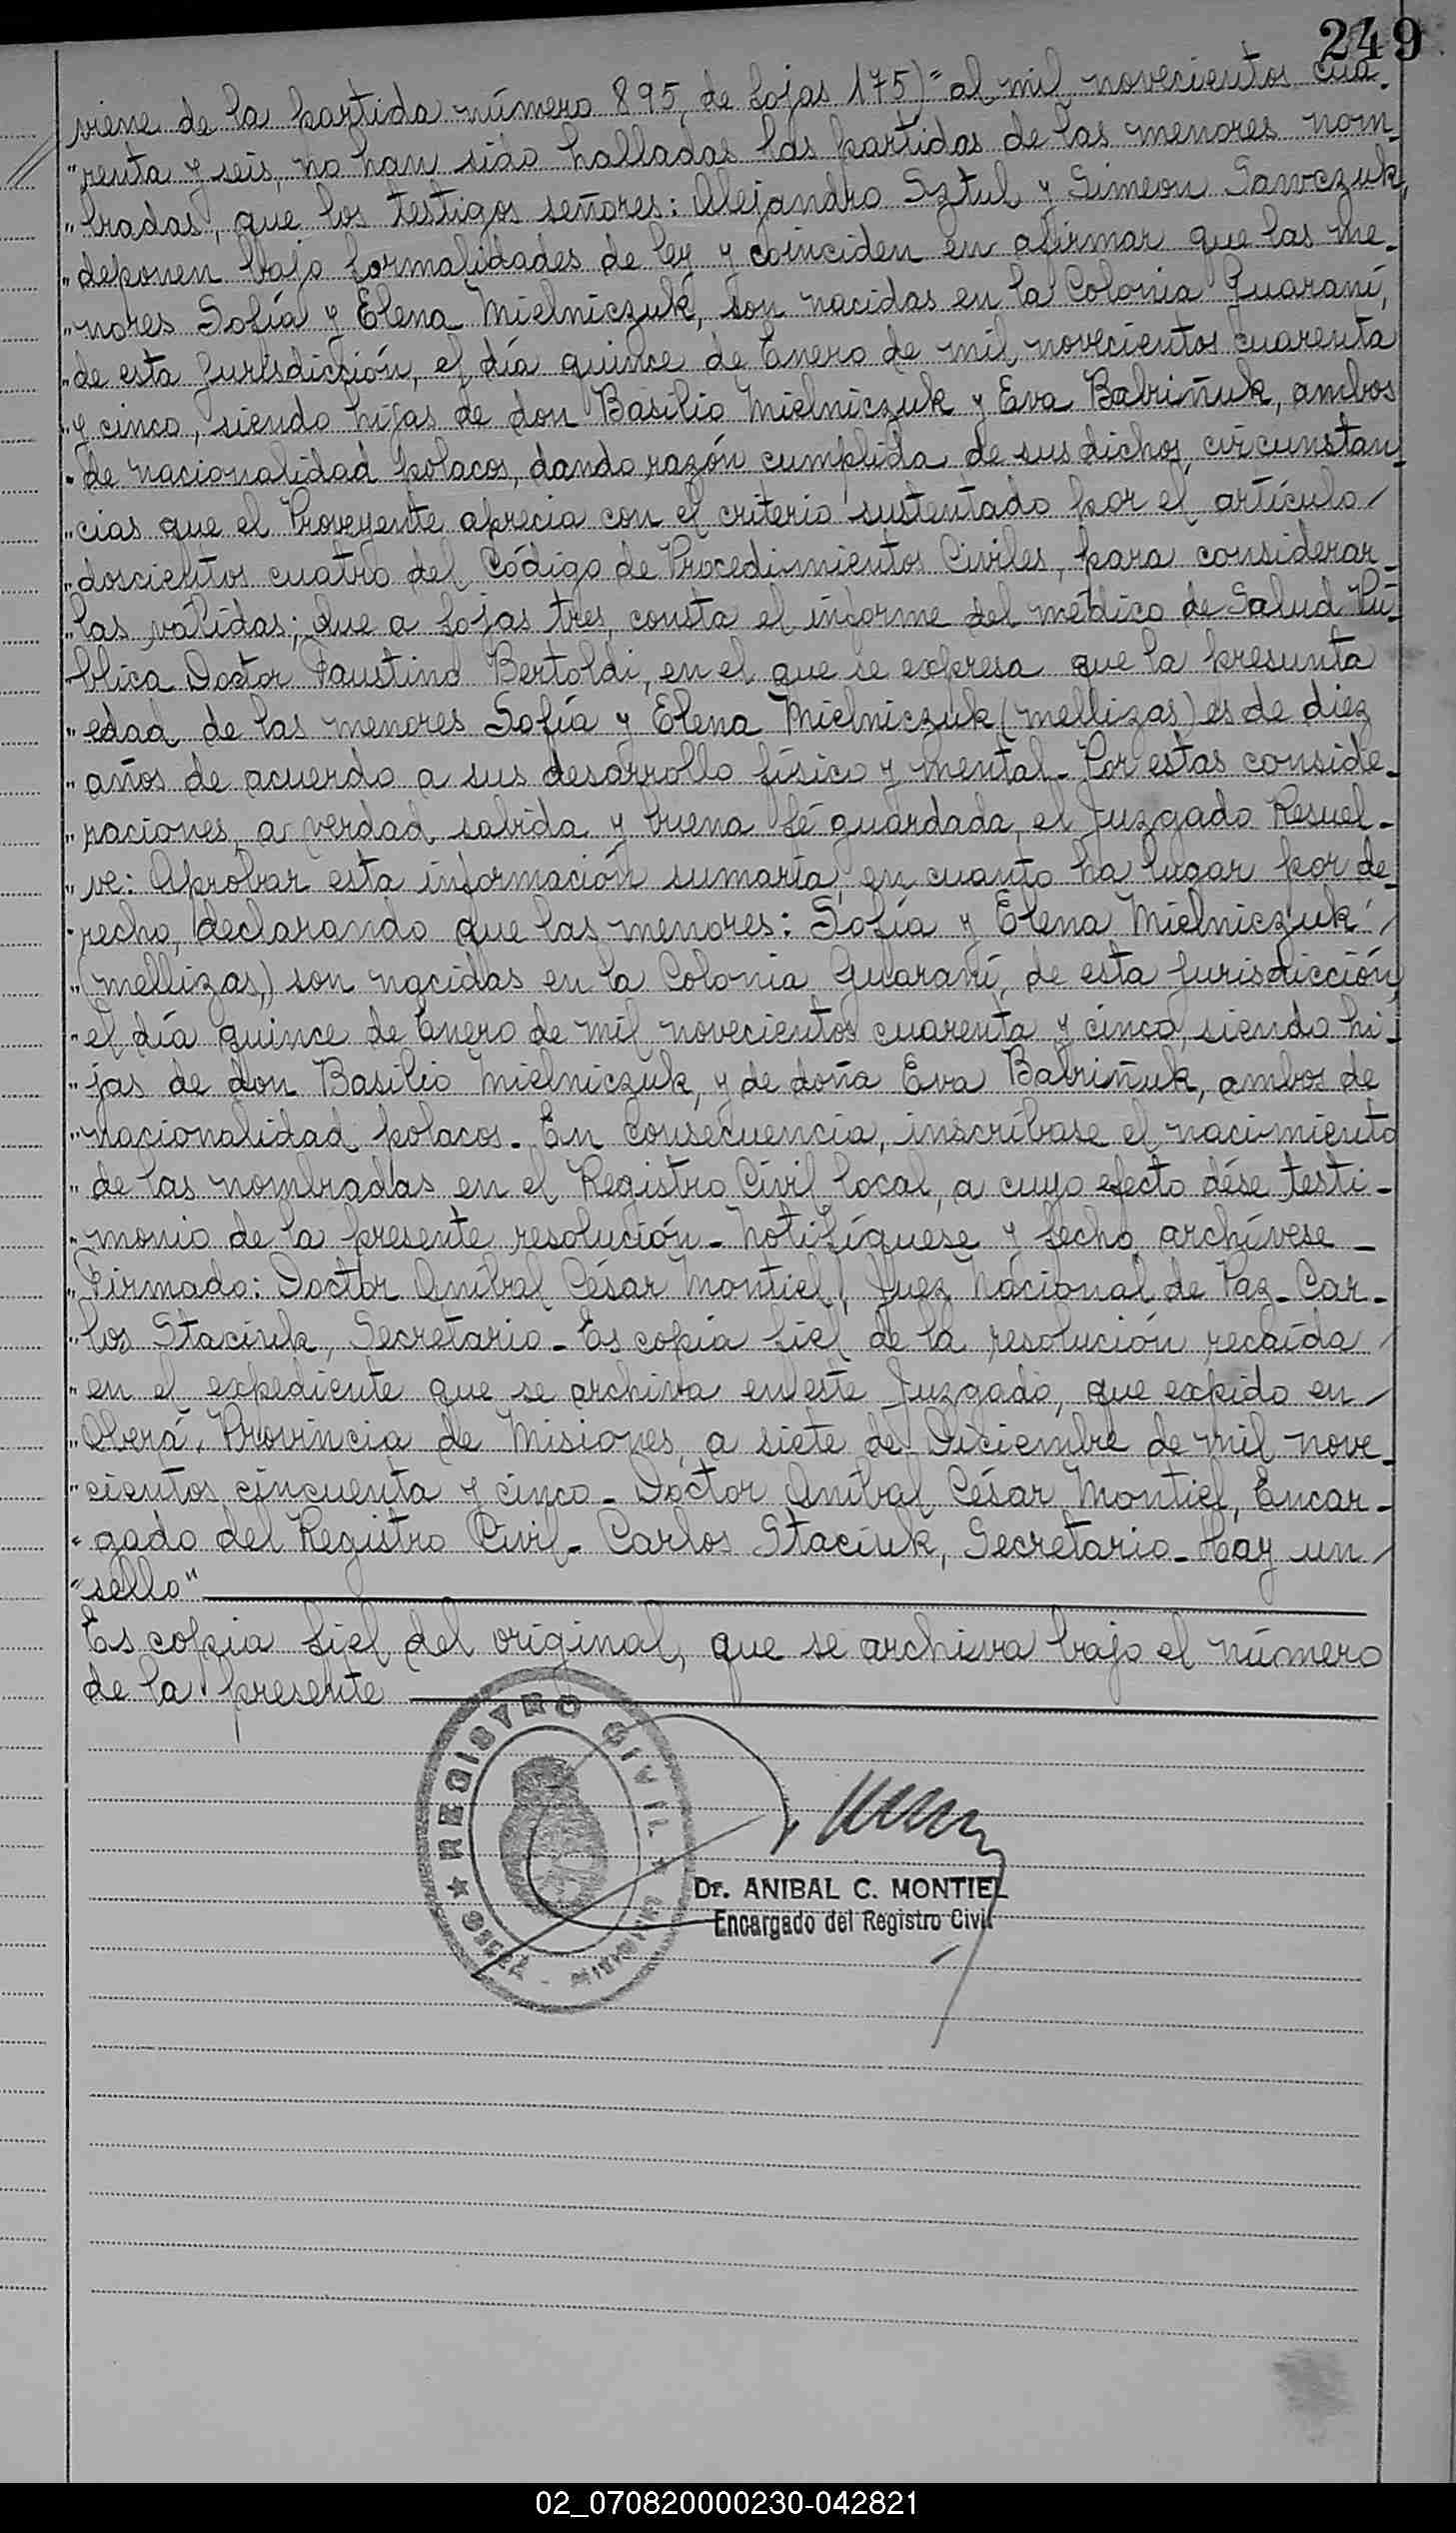 249
viene de la partida número 895, de fojas 175)" al mil novecientos cua-
"renta y seis, no han sido halladas las partidas de las menores nom-
"bradas, que los testigos señores: Alejandro Sztul y Simeon Sawczuk,
"deponen bajo formalidades de ley y coinciden en afirmar que las me-
"nores Sofía y Elena Mielniczuk, son nacidas en la Colonia Guaraní,
"de esta Jurisdicción, el día quince de Enero de mil novecientos cuarenta
"y cinco, siendo hijas de don Basilio Mielniczuk y Eva Babriñuk, ambos
"de nacionalidad polacos, dando razón cumplida de sus dichos, circunstan-
"cias que el Proveyente aprecia con el criterio sustentado por el artículo /
"doscientos cuatro del Código de Procedimientos Civiles, para considerar-
"las válidas; Que a fojas tres, consta el informe del médico de Salud Pú-
"blica Doctor Faustino Bertoldi, en el que se expresa que la presunta
"edad de las menores Sofía y Elena Mielniczuk (mellizas) es de diez
"años de acuerdo a sus desarrollo físico y mental- Por estas conside-
"raciones, a verdad sabida y buena fé guardada, el Juzgado Resuel-
"ve: Aprobar esta información sumaria, en cuanto ha lugar por de-
"recho, declarando que las menores: Sofía y Elena Mielniczuk /
"(mellizas,) son nacidas en la Colonia Guaraní, de esta jurisdicción,
"el día quince de Enero de mil novecientos cuarenta y cinco, siendo hi-
"jas de don Basilio Mielniczuk, y de doña Eva Babriñuk, ambos de
"nacionalidad polacos- En Consecuencia, inscríbase el nacimiento
"de las nombradas en el Registro Civil local, a cuyo efecto dése testi-
"monio de la presente resolución- Notifíquese y fecho, archívese-
"Firmado: Doctor Aníbal César Montiel, Juez Nacional de Paz- Car-
"los Staciuk, Secretario- Es copia fiel de la resolución recaída /
"en el expediente que se archiva en este Juzgado, que expido en /
"Oberá, Provincia de Misiones, a siete de Diciembre de mil nove-
"cientos cincuenta y cinco- Doctor Aníbal César Montiel, Encar-
"gado del Registro Civil- Carlos Staciuk, Secretario- Hay un /
"sello"
Es copia fiel del original, que se archiva bajo el número
de la presente
REGISTRO CIVIL
OBERA - MISIONES
Dr. ANIBAL C. MONTIEL
Encargado del Registro Civil
02_070820000230-042821